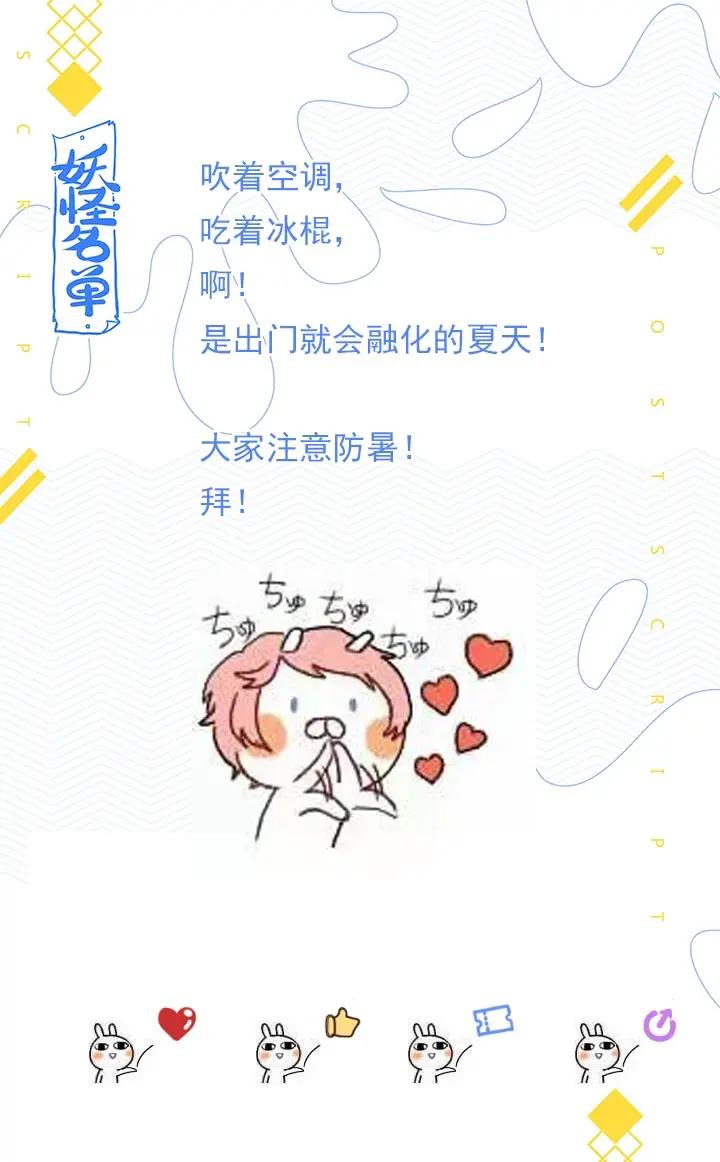 SCRIPT
妖怪名单
吹着空调，
吃着冰棍，
啊！
是出门就会融化的夏天！
大家注意防暑！
拜！
POSTSCRIPT
ちゅ
ちゅ
ちゅ
ちゅ
ちゅ